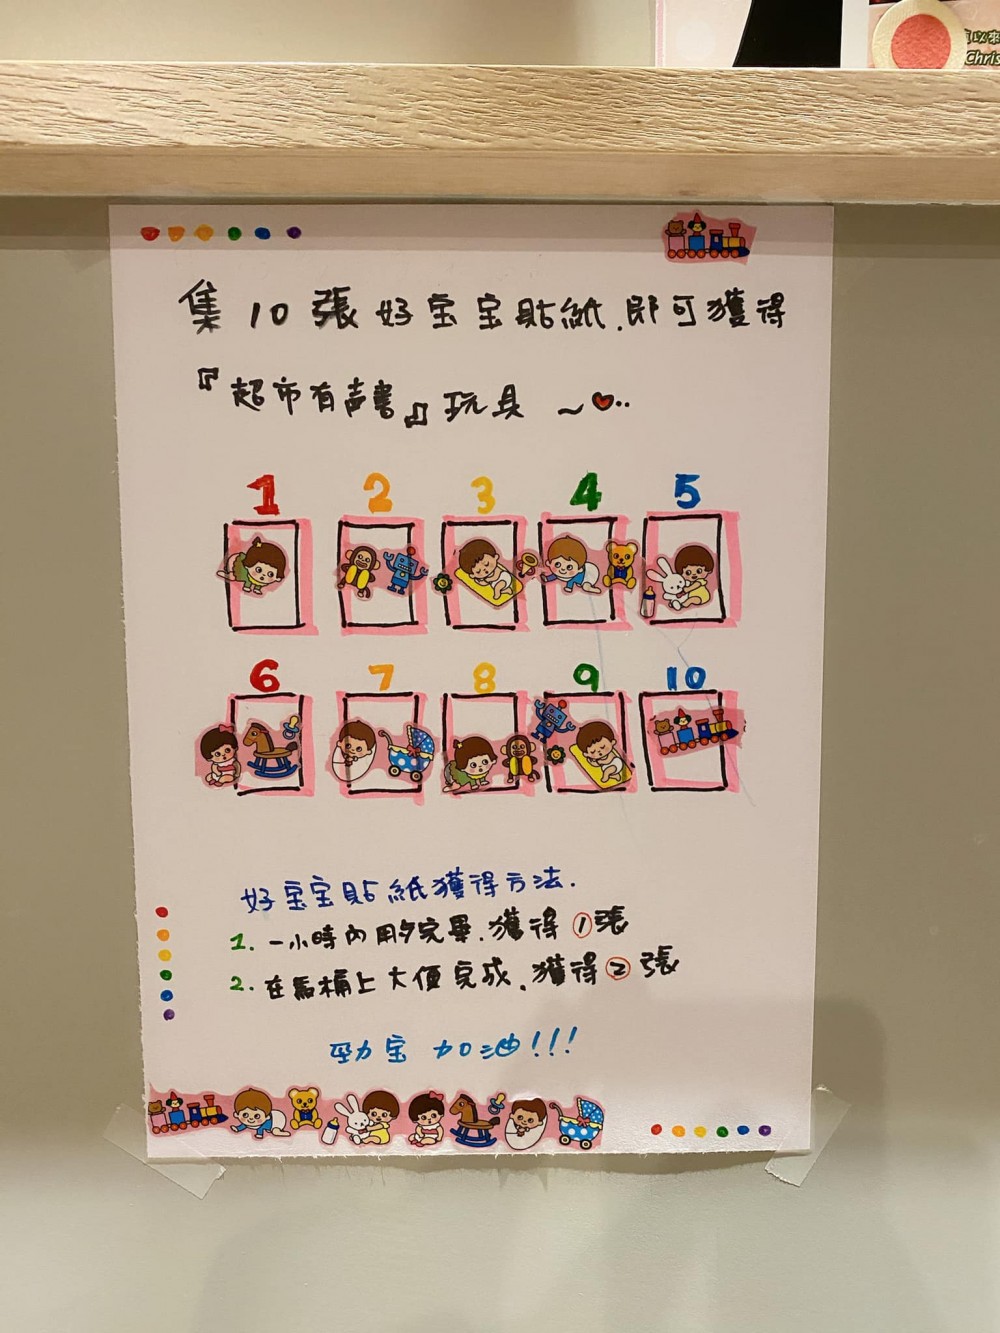 以來
Chris
集10張好宝宝貼紙.即可獲得
『超市有声書』玩具 ~
1 2 3 4 5
6 7 8 9 10
好宝宝貼紙獲得方法.
1. 一小時內用歺完畢.獲得①張
2. 在馬桶上大便完成.獲得②張
劲宝 加油!!!